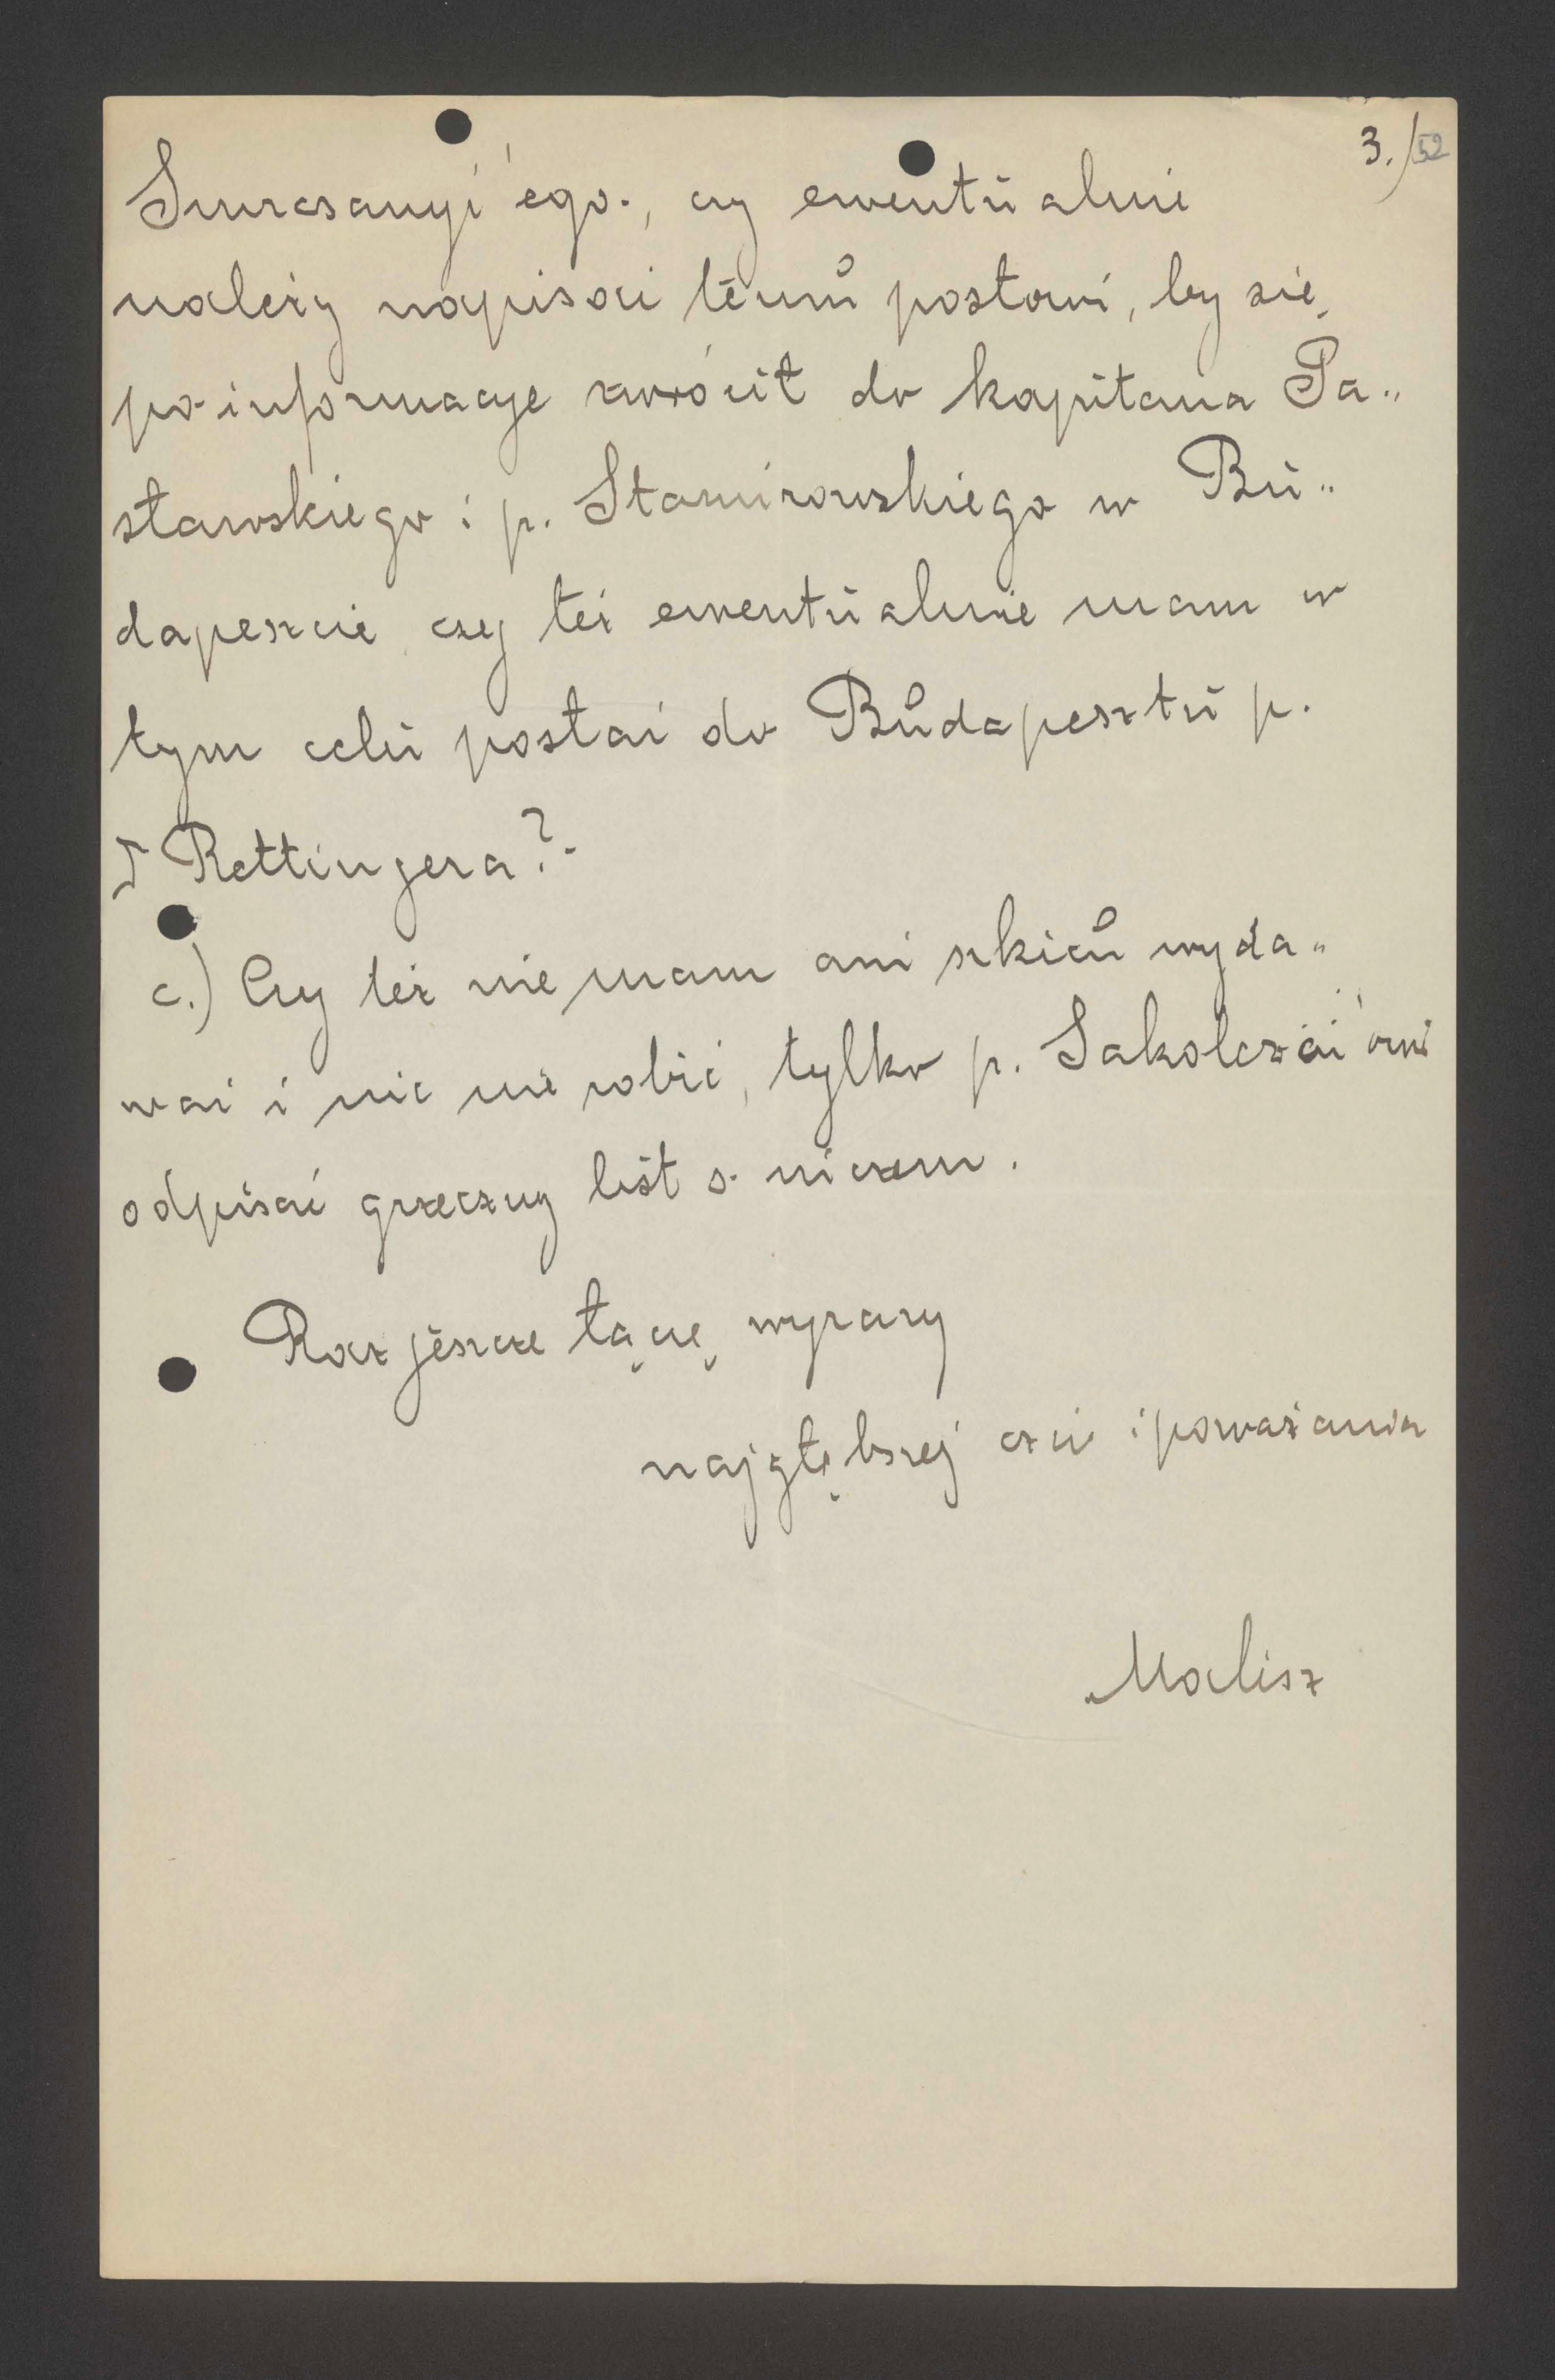 3.) 52
Smrcsanyi'ego, czy ewentualnie
należy napisać temu posłowi, by się
po informacje zwrócił do kapitana Pa„
sławskiego i p. Stamirowskiego w Bu„
dapeszcie czy też ewentualnie mam w
tym celu posłać do Budapesztu p.
Rettingera?
c.) Czy też nie mam ani szkicu wyda„
wać i nic nie robić, tylko p. Sakolczái'owi
odpisać grzeczny list o niczem.
Raz jeszcze łączę wyrazy
najgłębszej czci i poważania
Malisz